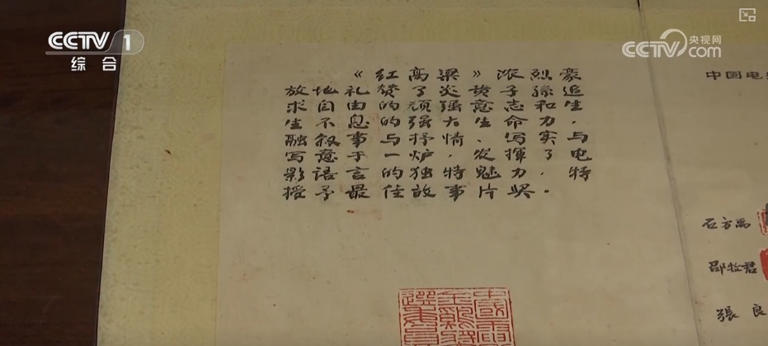 CCTV 1
综合
央视网
CCTV.com
《红高粱》浓烈豪
放地礼赞了炎黄子孫追
求自由的顽强意志和生
生不息的强大生命力，
融叙事与抒情、写实与
写意于一炉，发揮了电
影语言的独特魅力，特
授予最佳故事片奖。
中国电
石方禹
邵牧君
張良